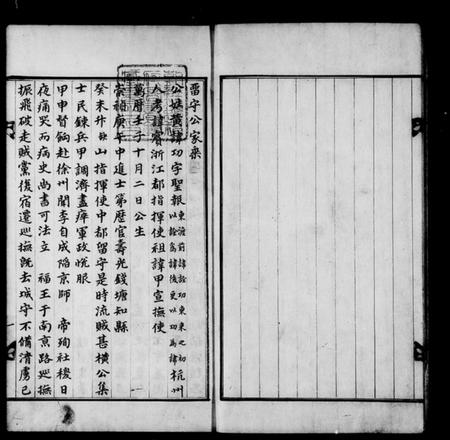 留守公家乘
公姓黃諱功字聖報東滄前諱諡功東來之初以諡為諱後更以功為諱杭州
人考諱賓浙江都指揮使祖諱甲宣撫使
萬曆壬子十月二日公生
崇禎庚午中進士第歷官壽光錢塘知縣
癸未升山指揮使中都留守是時流賊甚橫公集
士民錬兵甲調濟畫瘁軍政悅服
甲申督餉赴徐州聞李自成陷京師 帝殉社稷日
夜痛哭而病史尚書可法立 福王于南京路巡撫
振飛破走賊黨後宿遷巡撫既去城守不備清虜已